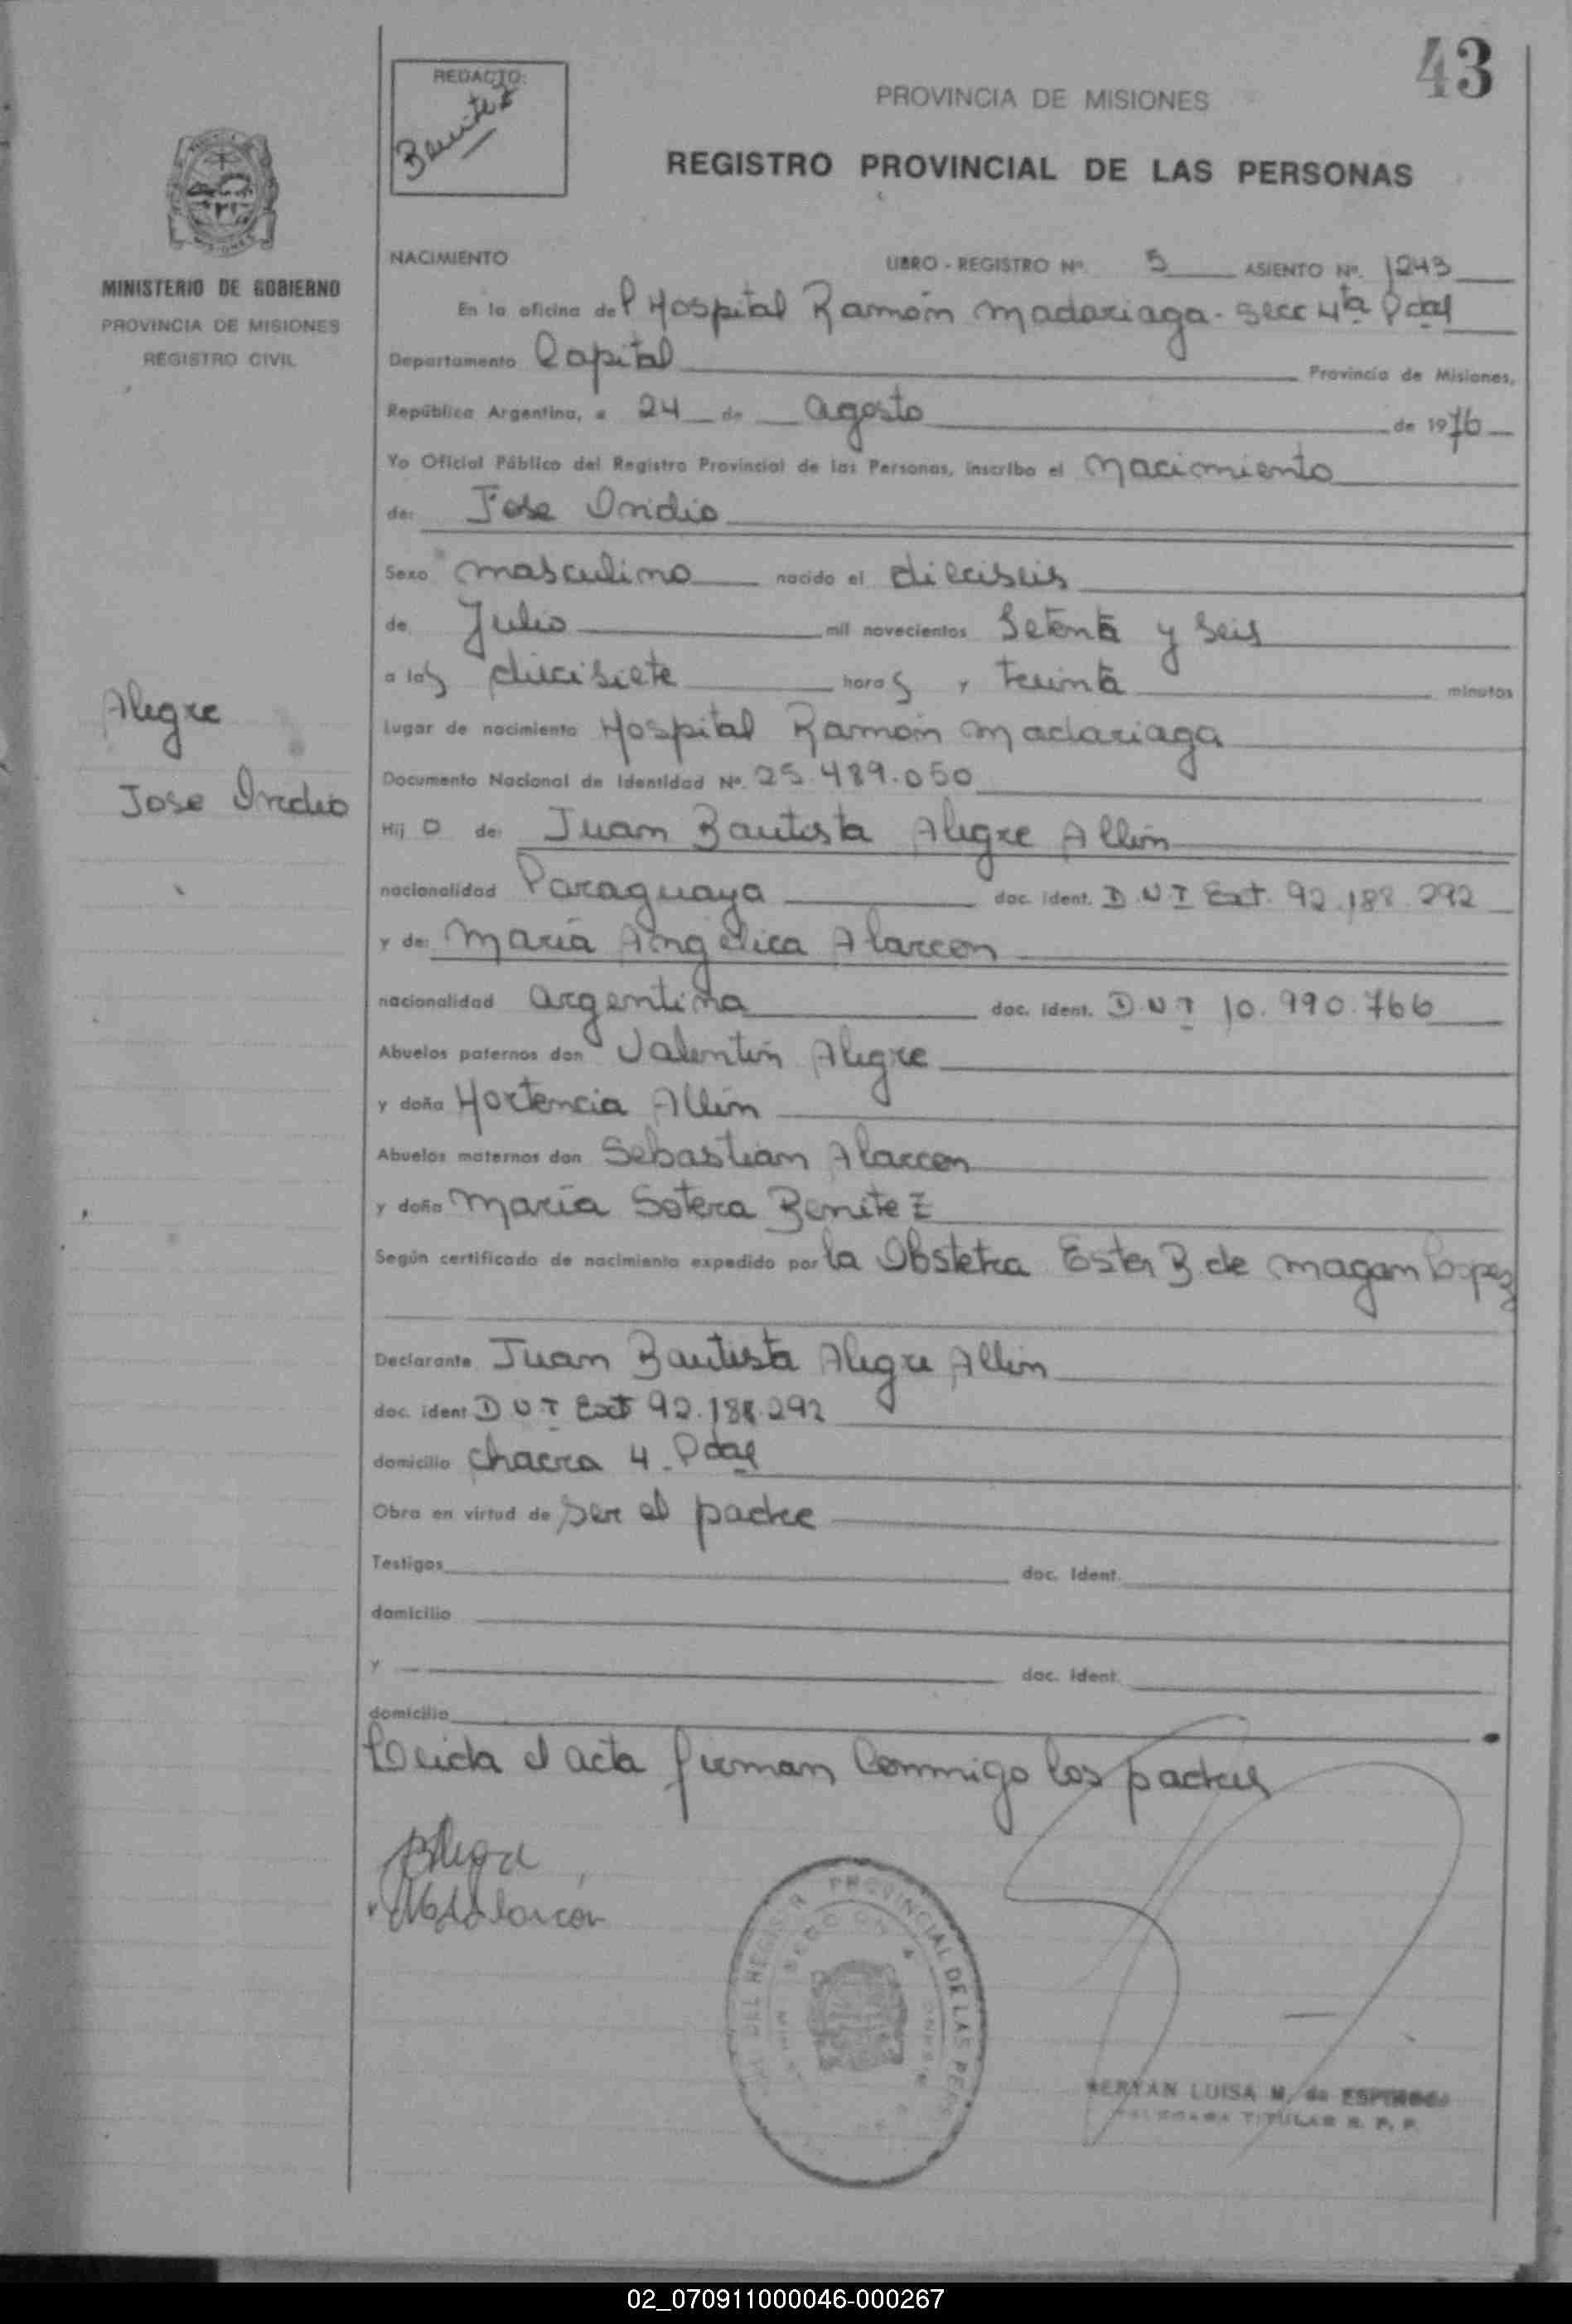 43
REDACTO:
Benitez
PROVINCIA DE MISIONES
REGISTRO PROVINCIAL DE LAS PERSONAS
MISIONES
MINISTERIO DE GOBIERNO
PROVINCIA DE MISIONES
REGISTRO CIVIL
NACIMIENTO LIBRO - REGISTRO Nº 5 ASIENTO Nº. 1243
En la oficina del Hospital Ramón Madariaga. Secc 4ta Pdas
Departamento Capital Provincia de Misiones,
República Argentina, a 24 de agosto de 1976
Yo Oficial Público del Registro Provincial de las Personas, inscribo el Nacimiento
de: Jose Ovidio
Sexo masculino nacido el dieciseis
de Julio mil novecientos Setenta y Seis
a las diecisiete horas y treinta minutos
Alegre
Jose Ovidio
Lugar de nacimiento Hospital Ramón Madariaga
Documento Nacional de Identidad Nº. 25.489.050
Hij o de: Juan Bautista Alegre Allin
nacionalidad Paraguaya doc. ident. D.U.I Ext. 92.188.292
y de: María Angélica Alarcon
nacionalidad argentina doc. ident. D.U.I 10.990.766
Abuelos paternos don Valentín Alegre
y doña Hortencia Allin
Abuelos maternos don Sebastian Alarcon
y doña María Sotera Benitez
Según certificado de nacimiento expedido por la Obstetra Ester B. de Magan Lopez
Declarante Juan Bautista Alegre Allin
doc. ident D.U.I Ext 92.188.292
domicilio Chacra 4. Pdas
Obra en virtud de ser el padre
Testigos doc. ident.
domicilio
y doc. ident.
domicilio
Leida el acta firman conmigo los padres
Alegre
Alarcón
DEL REGISTR PROVINCIAL DE LAS PERS
SECCION 4
LUISA M. de ESPINOSA
TITULAR R. P. P.
02_070911000046-000267